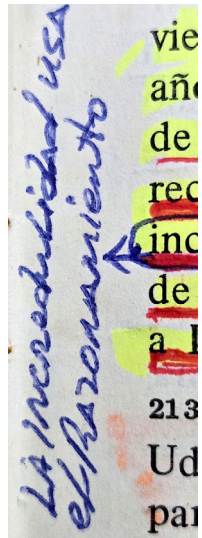 LA incredulidad usa
el Razonamiento
vie
año
de
rec
inc
de
a
213
Ud
par